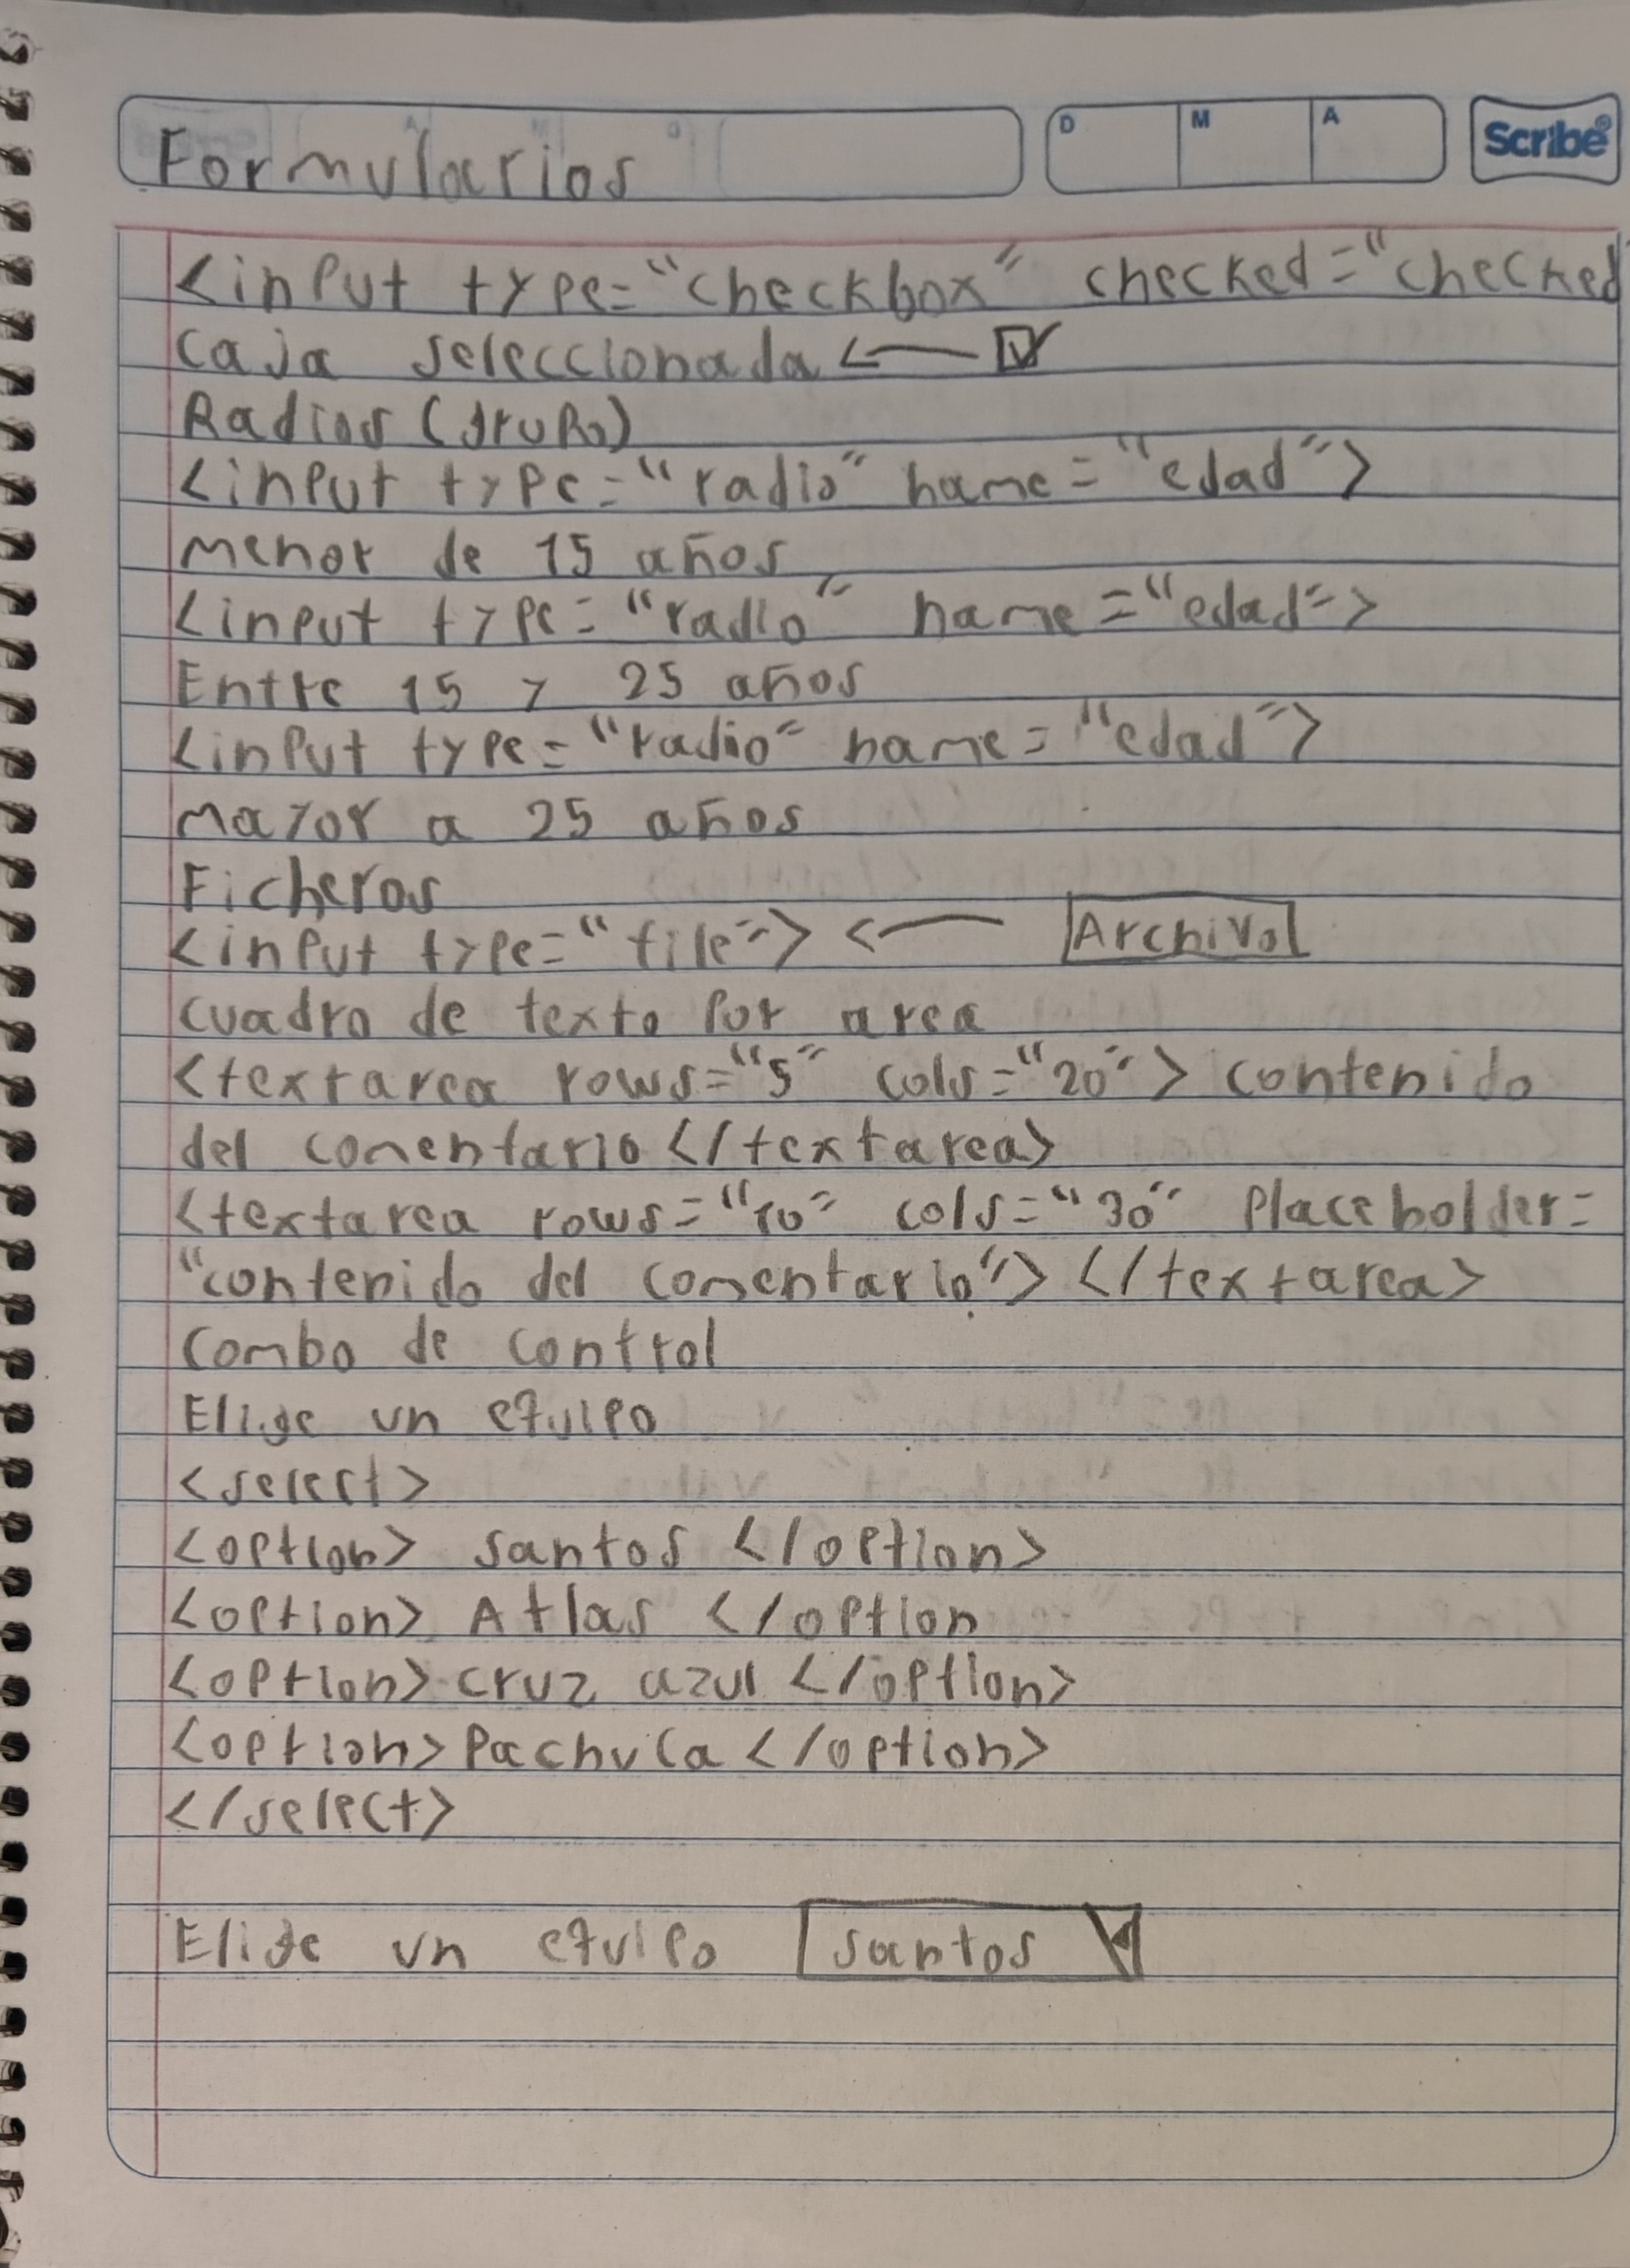 Formularios
D M A
Scribe
<input type="checkbox" checked="checked
caja seleccionada ←
Radios (grupo)
<input type="radio" name="edad">
menor de 15 años
<input type="radio" name="edad">
Entre 15 y 25 años
<input type="radio" name="edad">
mayor a 25 años
Ficheros
<input type="file"> ← Archivo
cuadro de texto por area
<textarea rows="5" cols="20"> contenido
del comentario </textarea>
<textarea rows="10" cols="30" Placeholder=
"contenido del comentario"> </textarea>
Combo de control
Elige un equipo
<select>
<option> santos </option>
<option> Atlas </option
<option> cruz azul </option>
<option> Pachuca </option>
</select>
Elige un equipo santos